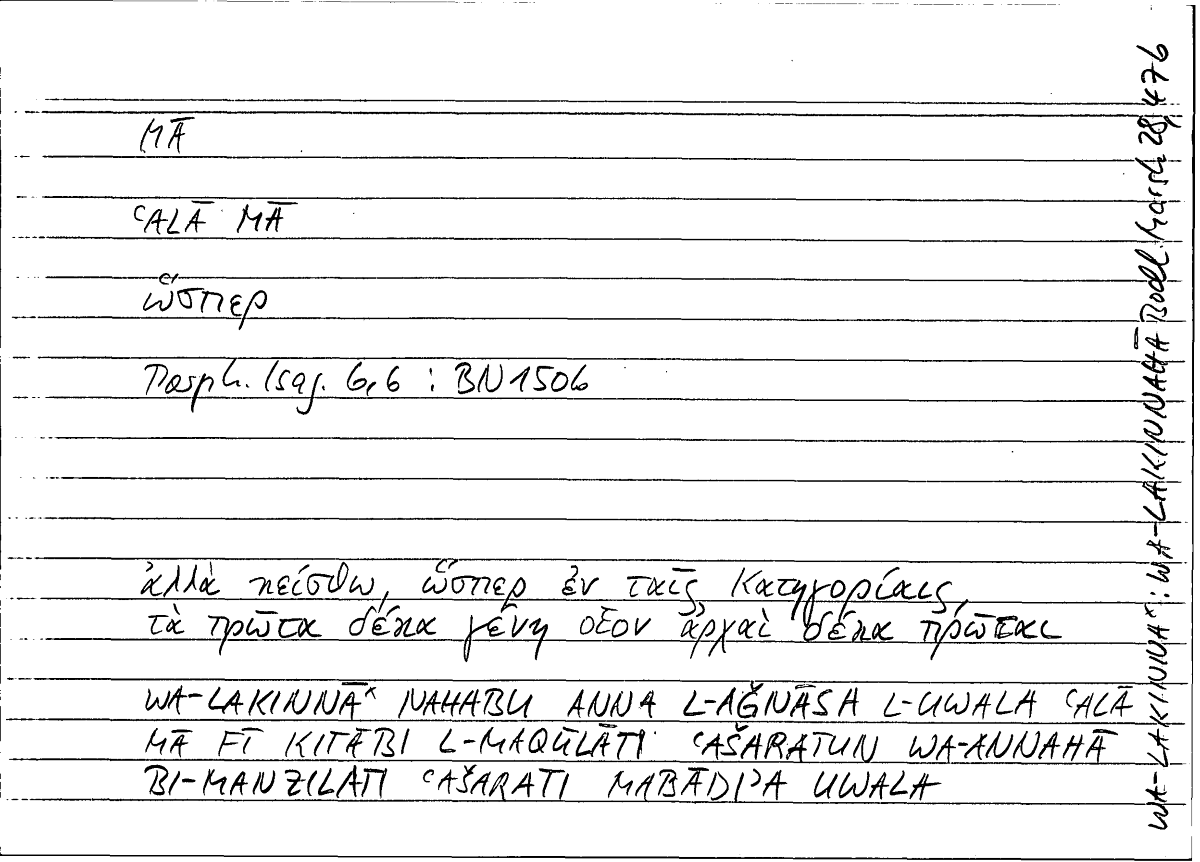 MĀ
ʿALĀ MĀ
ὥσπερ
Porph. Isag. 6,6 : BN 1506
ἀλλὰ κείσθω, ὥσπερ ἐν ταῖς Κατηγορίαις,
τὰ πρῶτα δέκα γένη οἷον ἀρχαὶ δέκα πρῶται
WA-LAKINNĀ* NAHABU ANNA L-AǦNĀSA L-UWALA ʿALĀ
MĀ FĪ KITĀBI L-MAQŪLĀTI ʿAŠARATUN WA-ANNAHĀ
BI-MANZILATI ʿAŠARATI MABĀDIʾA UWALA
WA-LAKINNA*: WA-LAKINNAHĀ Bodl. Marsh. 28,476